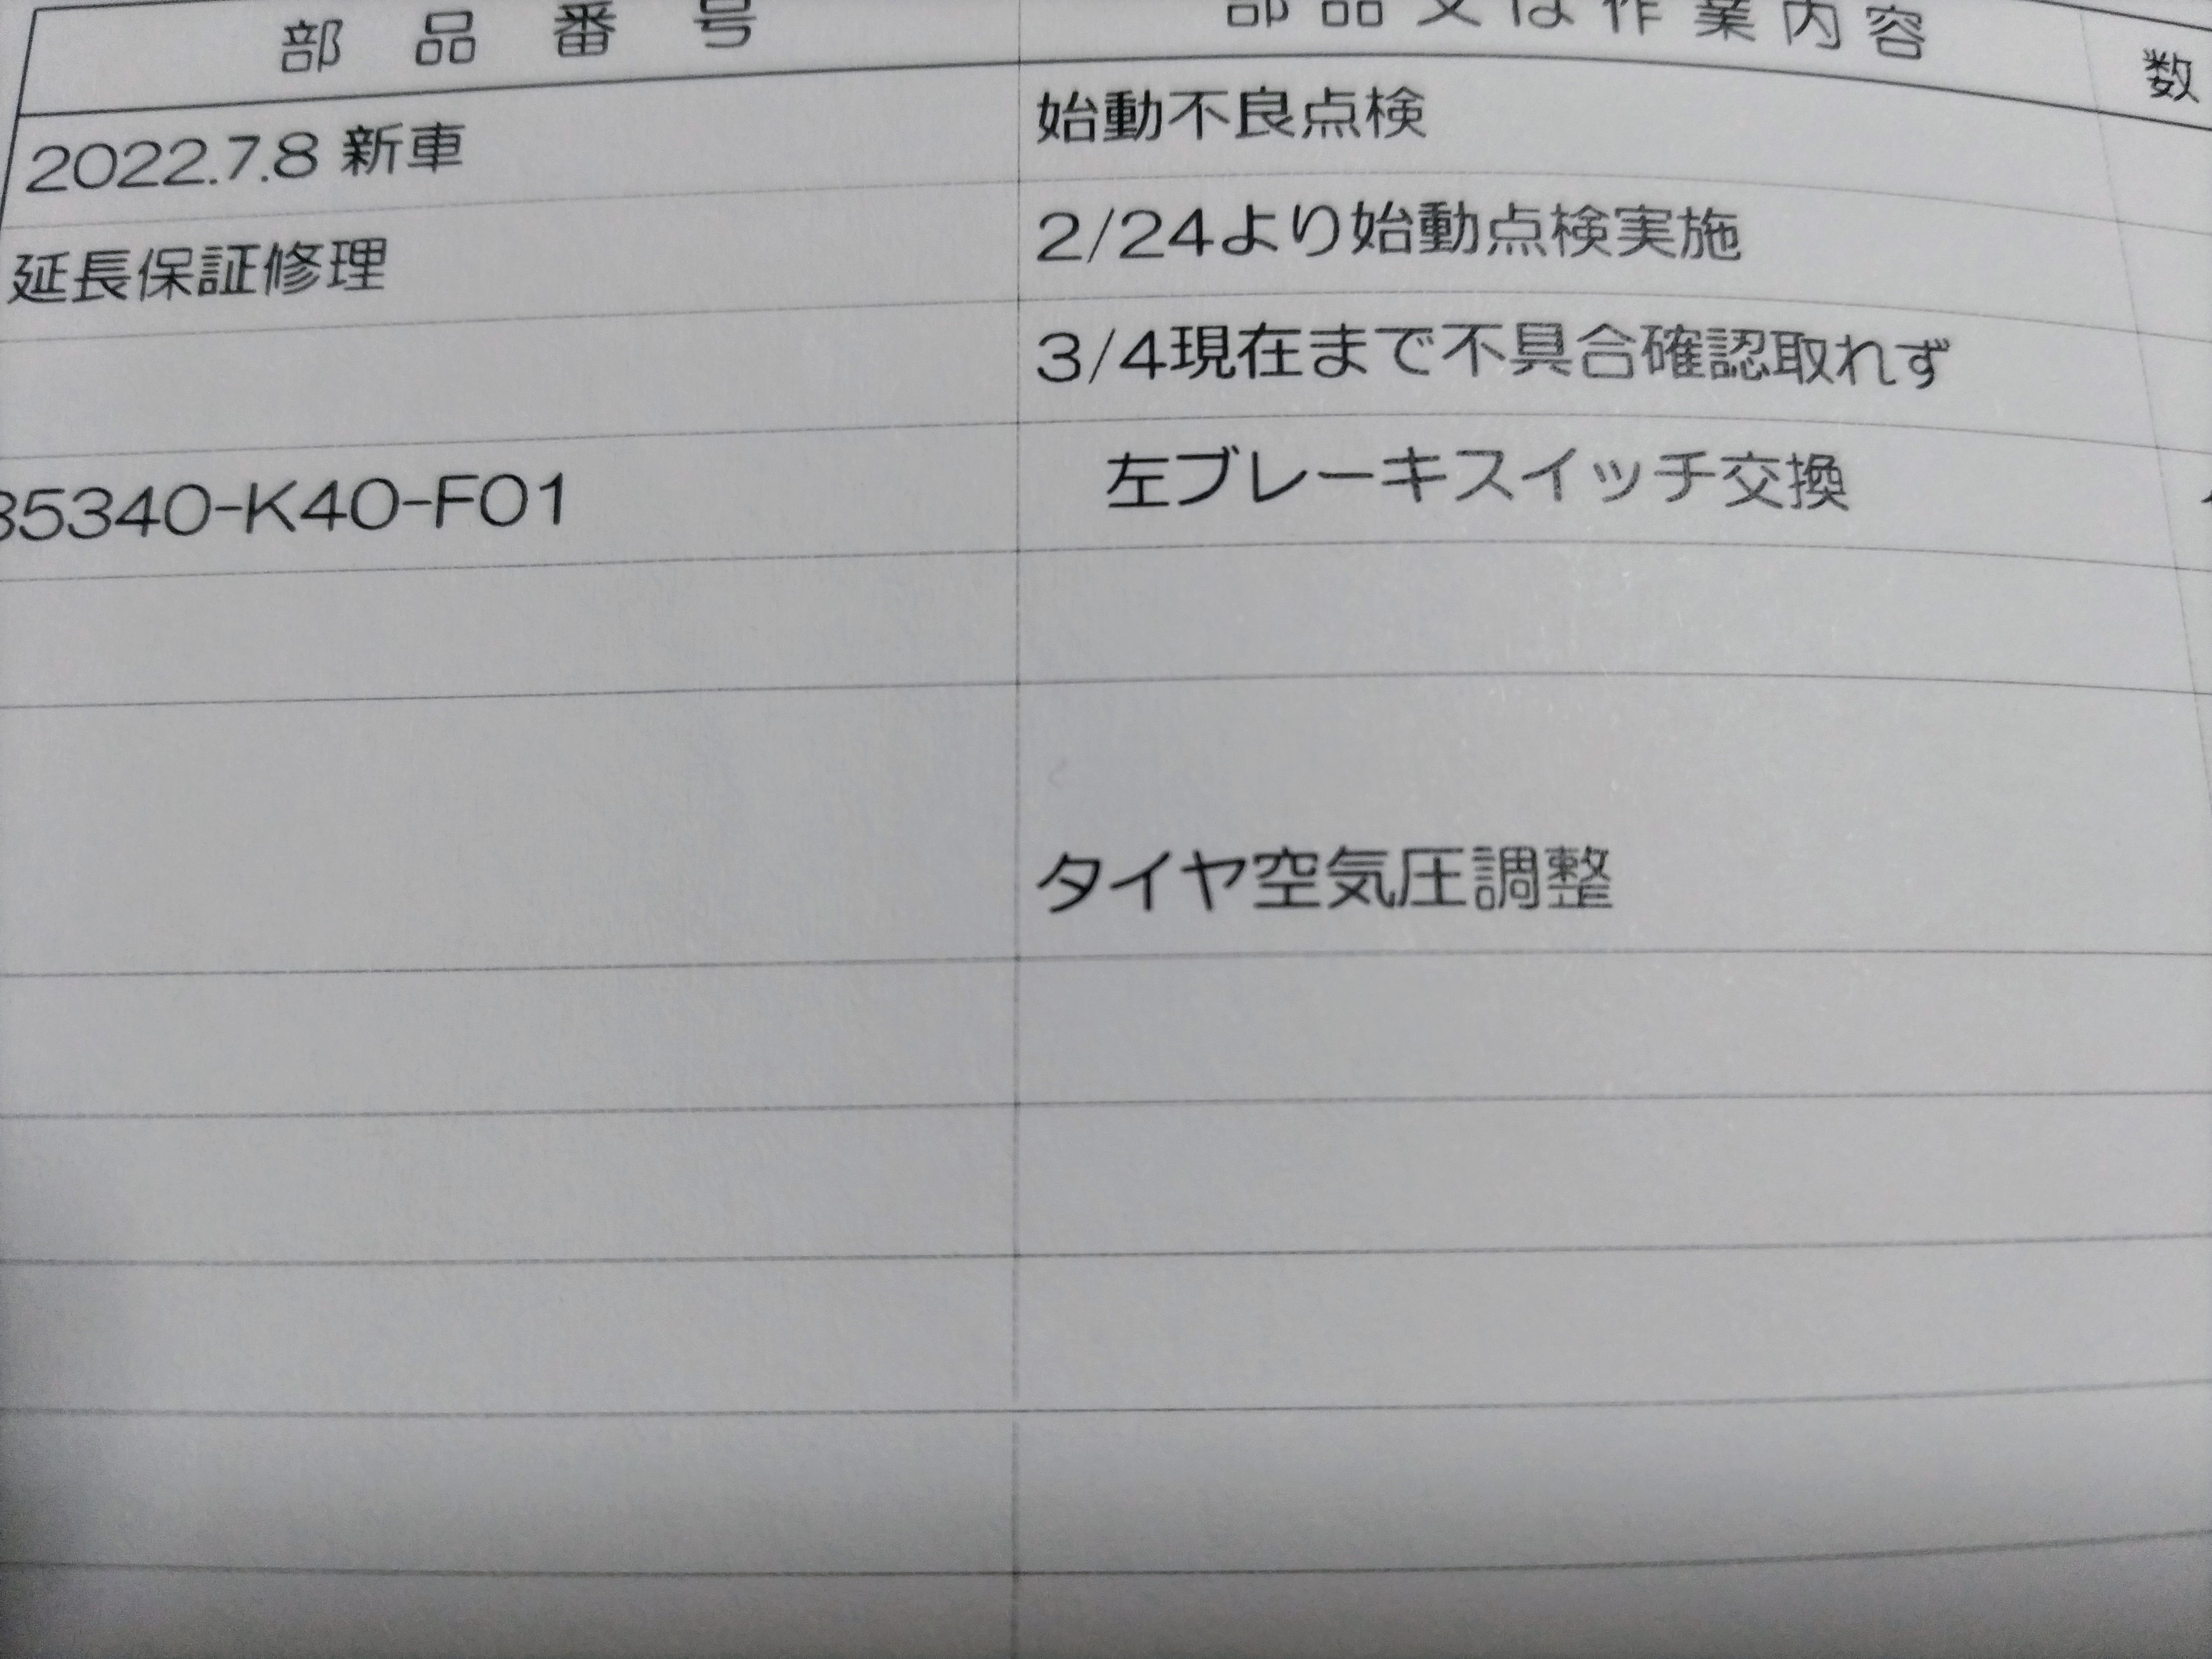 部品番号 部品又は作業内容 数
2022.7.8 新車 始動不良点検
延長保証修理 2/24より始動点検実施
3/4現在まで不具合確認取れず
35340-K40-F01 左ブレーキスイッチ交換
タイヤ空気圧調整